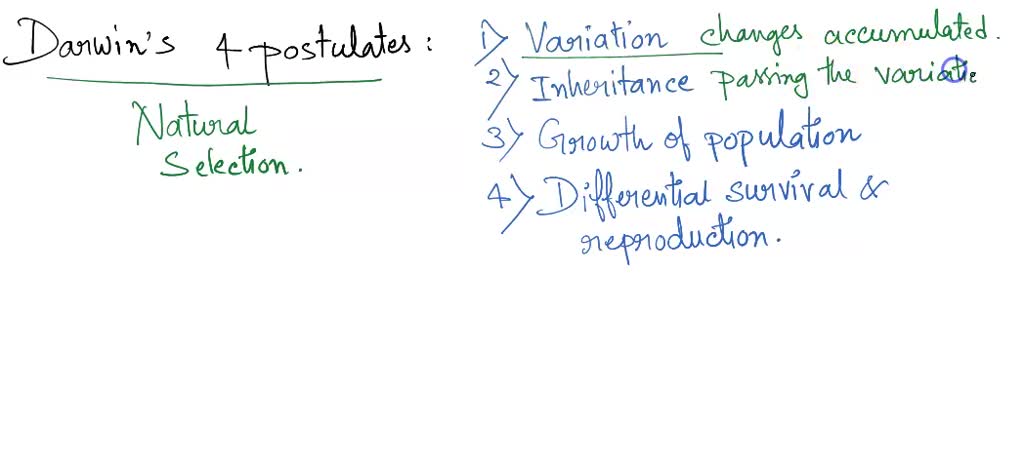 Darwin's 4 postulates :
Natural
Selection.
1) Variation changes accumulated.
2) Inheritance passing the variatio
3) Growth of population
4) Differential survival &
reproduction.